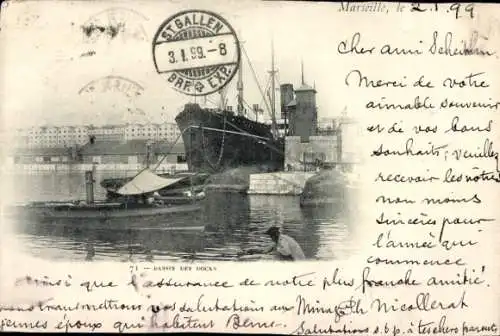 Marseille, le 2.1.99
ST. GALLEN
3.1.99.-8
BRF. EXP.
Cher ami
Merci de votre
aimable souvenir
et de vos bons
souhaits, veuillez
recevoir les nôtres
non moins
sincères pour
l'année qui
commence
71 — BASSIN DES DOCKS
ainsi que l'assurance de notre plus franche amitié!
nous transmettons vos salutations aux
jeunes époux qui habitent Berne.
Salutations s.v.p. à tes chers parents